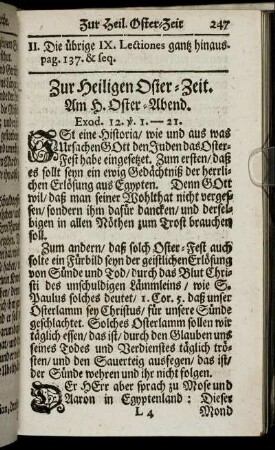 Zur Heil. Oster-Zeit 247
II. Die übrige IX. Lectiones gantz hinaus-
pag. 137. & seq.
Zur Heiligen Oster-Zeit.
Am H. Oster-Abend.
Exod. 12. ỳ. 1. — 21.
ISt eine Historia/ wie und aus was
Ursachen GOtt den Juden das Oster-
Fest habe eingesetzet. Zum ersten/ daß
es sollt seyn ein ewig Gedächtniß der herrli-
chen Erlösung aus Egypten. Denn GOtt
wil/ daß man seiner Wohlthat nicht verges-
sen/ sondern ihm dafür dancken/ und dersel-
bigen in allen Nöthen zum Trost brauchen
soll.
Zum andern/ daß solch Oster-Fest auch
solte ein Fürbild seyn der geistlichen Erlösung
von Sünde und Tod/ durch das Blut Chri-
sti des unschuldigen Lämmleins/ wie S.
Paulus solches deutet/ 1. Cor. 5. daß unser
Osterlamm sey Christus/ für unsere Sünde
geschlachtet. Solches Osterlamm sollen wir
täglich essen/ das ist/ durch den Glauben uns
seines Todes und Verdienstes täglich trö-
sten/ und den Sauerteig ausfegen/ das ist/
der Sünde wehren und ihr nicht folgen.
DEr HErr aber sprach zu Mose und
Aaron in Egyptenland: Dieser
L 4 Mond